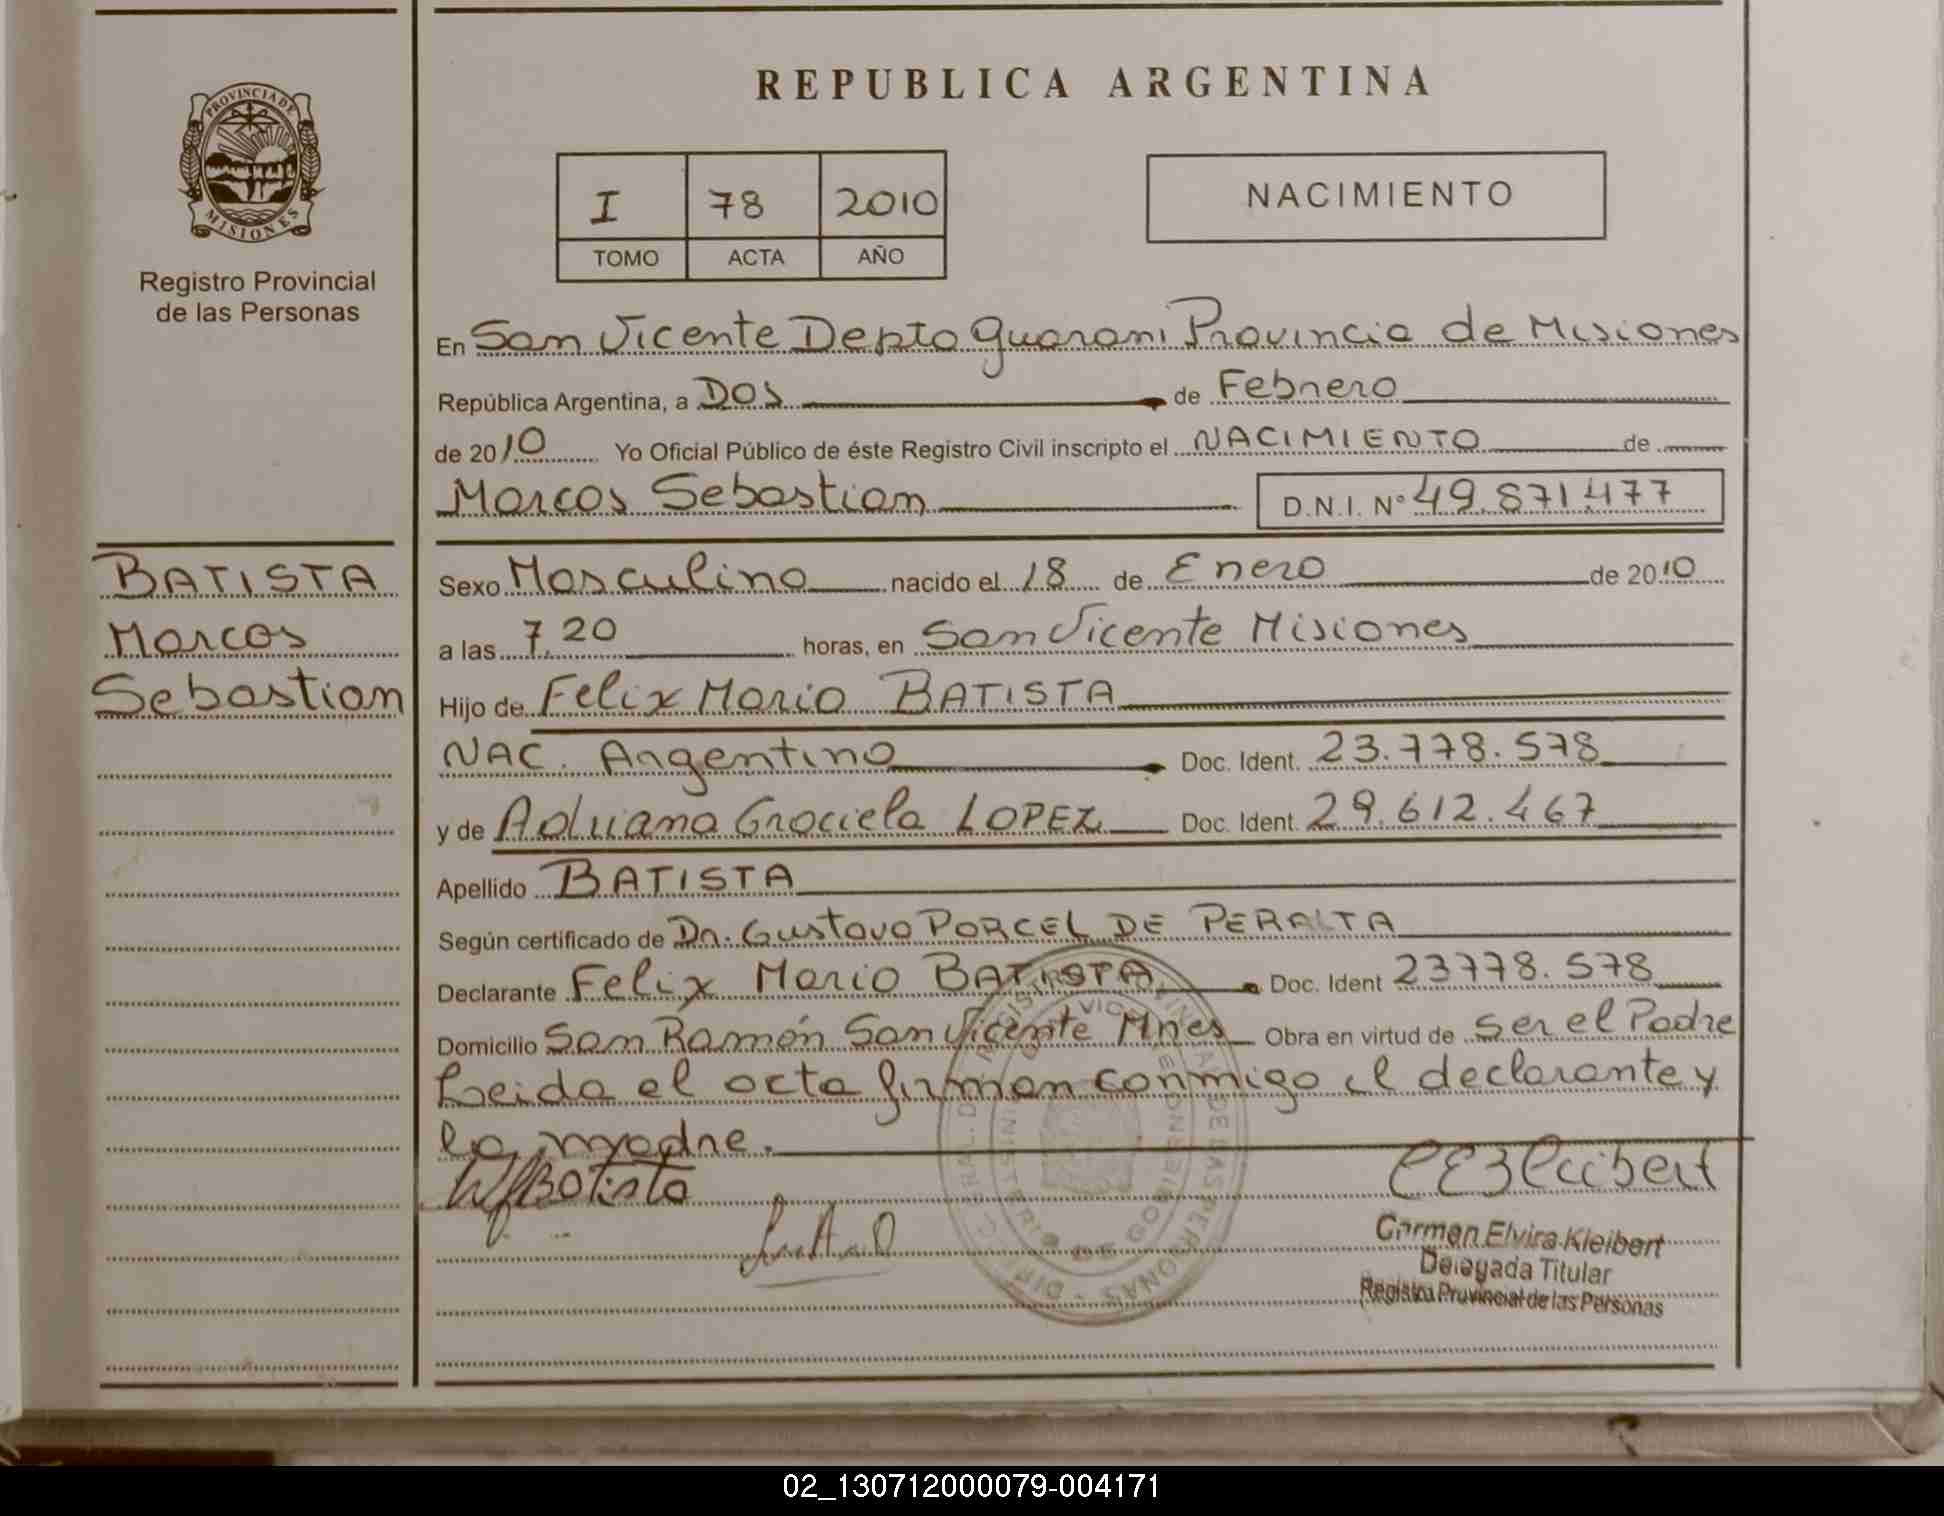 REPUBLICA ARGENTINA
PROVINCIA DE
MISIONES
Registro Provincial
de las Personas
I 78 2010
TOMO ACTA AÑO
NACIMIENTO
En San Vicente Depto Guarani Provincia de Misiones
República Argentina, a Dos de Febrero
de 2010 Yo Oficial Público de éste Registro Civil inscripto el NACIMIENTO de
Marcos Sebastian D.N.I. Nº 49.871.477
BATISTA
Marcos
Sebastian
Sexo Masculino nacido el 18 de Enero de 2010
a las 7.20 horas, en San Vicente Misiones
Hijo de Felix Mario BATISTA
NAC. Argentino Doc. Ident. 23.778.578
y de Adriana Graciela LOPEZ Doc. Ident. 29.612.467
Apellido BATISTA
Según certificado de Dr. Gustavo PORCEL DE PERALTA
Declarante Felix Mario BATISTA Doc. Ident 23778.578
Domicilio San Ramón San Vicente Mnes Obra en virtud de ser el Padre
Leida el acta firman conmigo el declarante y
la madre.
Batista
CEKleibert
Carmen Elvira Kleibert
Delegada Titular
Registro Provincial de las Personas
02_130712000079-004171